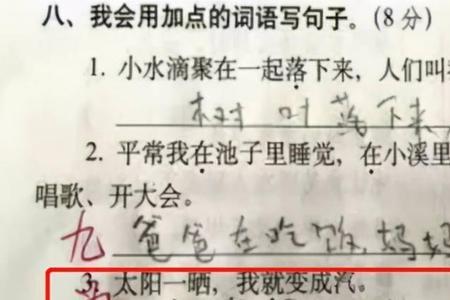 八、我会用加点的词语写句子。（8分）
1. 小水滴聚在一起落下来，人们叫
树叶落下来
2. 平常我在池子里睡觉，在小溪里
唱歌、开大会。
九 爸爸在吃饭，妈妈
3. 太阳一晒，我就变成汽。